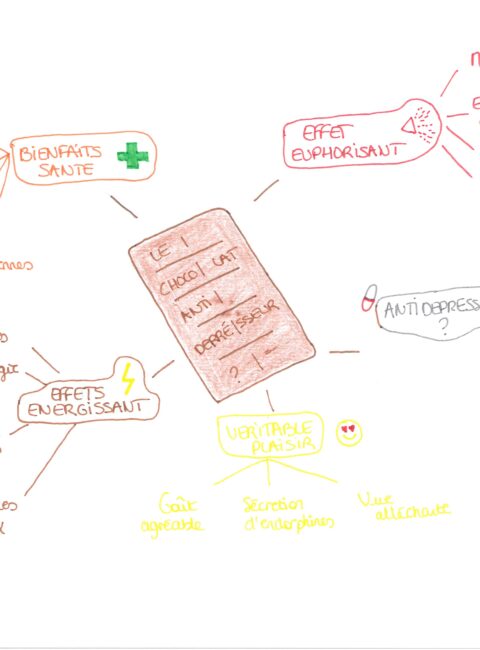 BIENFAITS
SANTE
EFFET
EUPHORISANT
LE
CHOCO LAT
ANTI
DEPRE SSEUR
?
ANTIDEPRESS
?
EFFETS
ENERGISSANT
VERITABLE
PLAISIR
Goût
agréable
Sécrétion
d'endorphines
Vue
alléchante